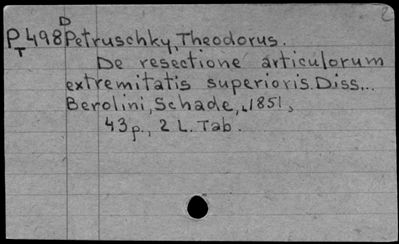 D
P498 Petruschky, Theodorus.
T De resectione articulorum
extremitatis superioris. Diss...
Berolini, Schade, 1851,
43p., 2 L. Tab.
2